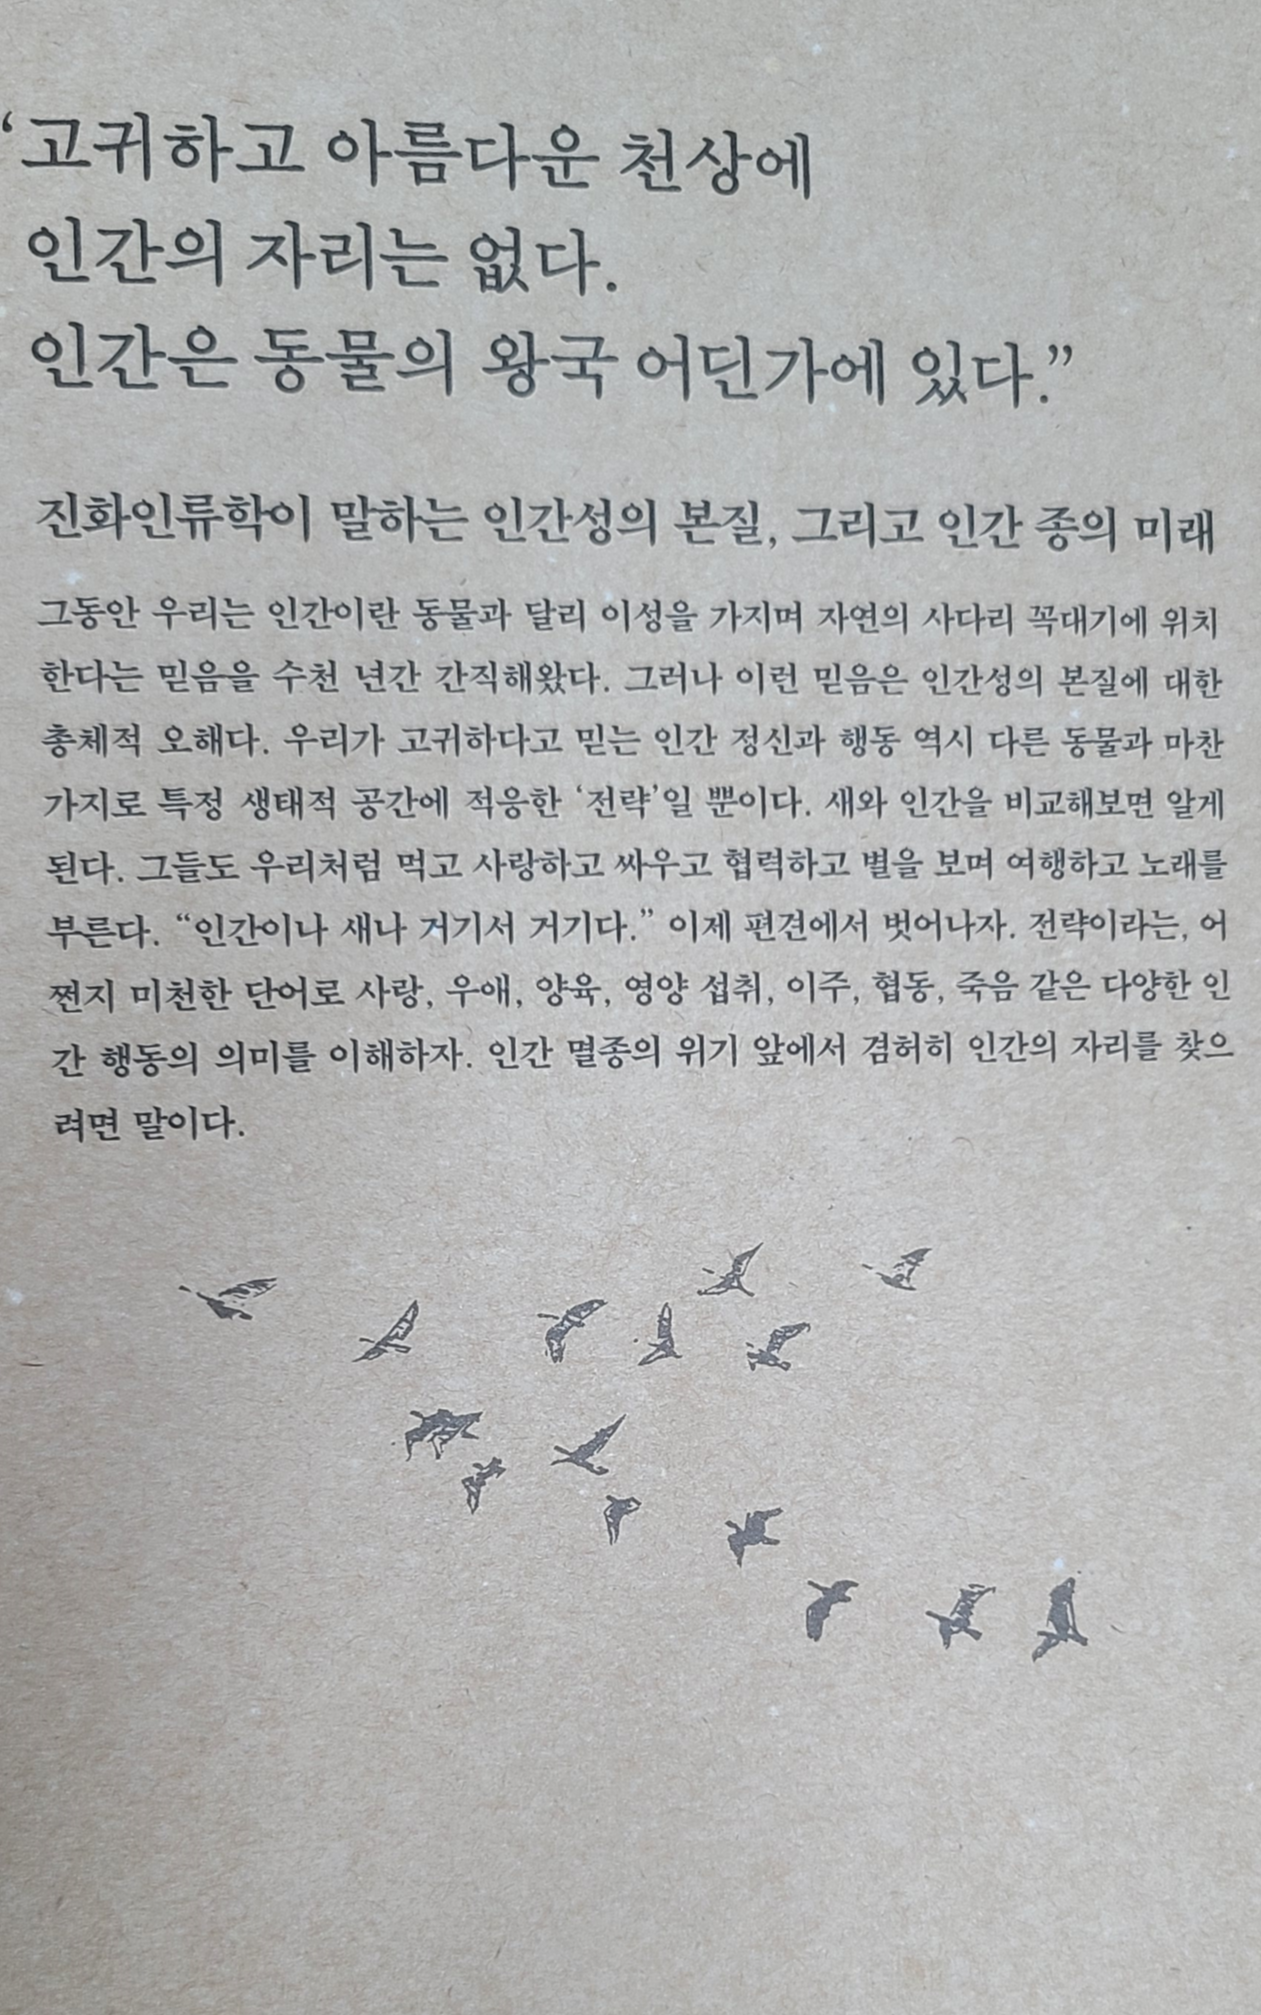 ‘고귀하고 아름다운 천상에
인간의 자리는 없다.
인간은 동물의 왕국 어딘가에 있다.”
진화인류학이 말하는 인간성의 본질, 그리고 인간 종의 미래
그동안 우리는 인간이란 동물과 달리 이성을 가지며 자연의 사다리 꼭대기에 위치
한다는 믿음을 수천 년간 간직해왔다. 그러나 이런 믿음은 인간성의 본질에 대한
총체적 오해다. 우리가 고귀하다고 믿는 인간 정신과 행동 역시 다른 동물과 마찬
가지로 특정 생태적 공간에 적응한 ‘전략’일 뿐이다. 새와 인간을 비교해보면 알게
된다. 그들도 우리처럼 먹고 사랑하고 싸우고 협력하고 별을 보며 여행하고 노래를
부른다. “인간이나 새나 거기서 거기다.” 이제 편견에서 벗어나자. 전략이라는, 어
쩐지 미천한 단어로 사랑, 우애, 양육, 영양 섭취, 이주, 협동, 죽음 같은 다양한 인
간 행동의 의미를 이해하자. 인간 멸종의 위기 앞에서 겸허히 인간의 자리를 찾으
려면 말이다.